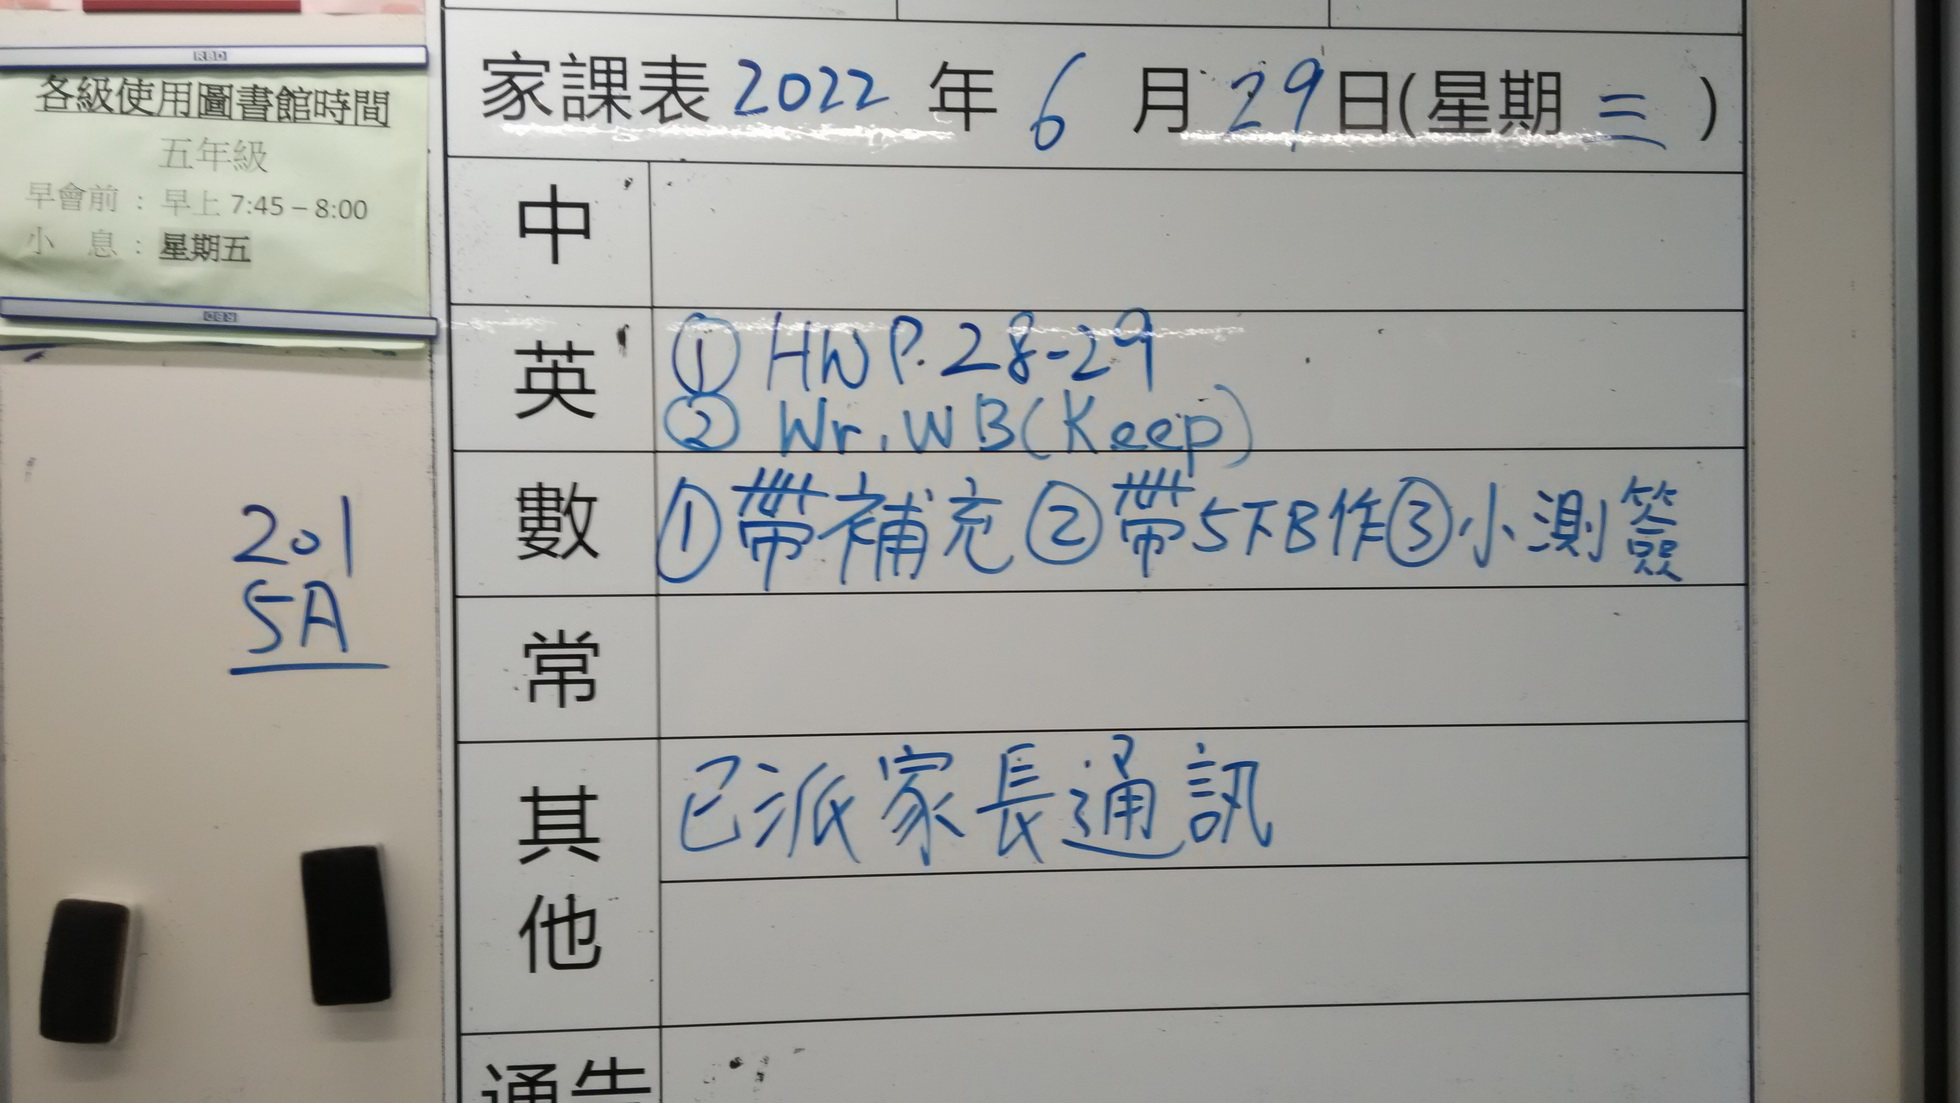 RBD
各級使用圖書館時間
五年級
早會前：早上 7:45 – 8:00
小 息：星期五
RBD
201
5A
家課表 2022 年 6 月 29 日(星期 三 )
中
英
① HW P.28-29
② Wr. WB(Keep)
數
①帶補充②帶5下B作③小測簽
常
其他
已派家長通訊
通告